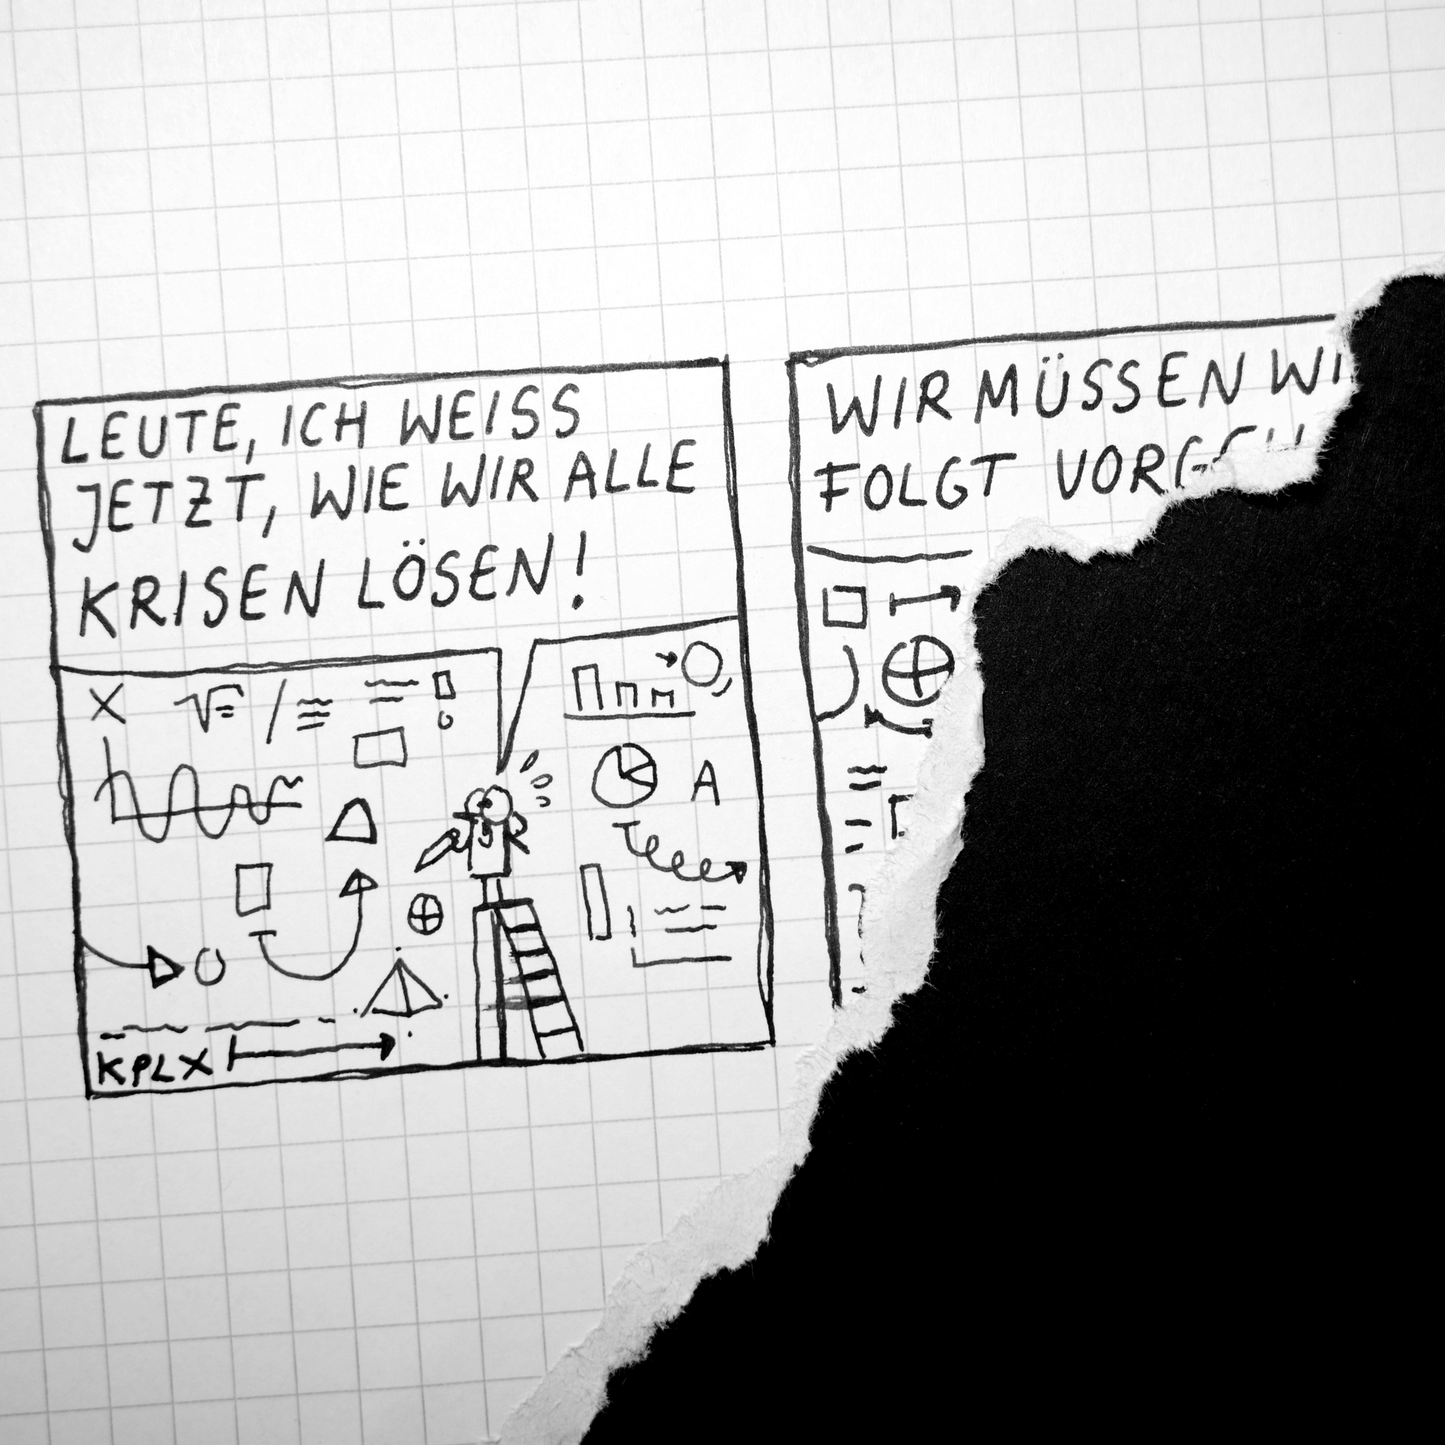 LEUTE, ICH WEISS
JETZT, WIE WIR ALLE
KRISEN LÖSEN!
A
KPLX
WIR MÜSSEN
FOLGT